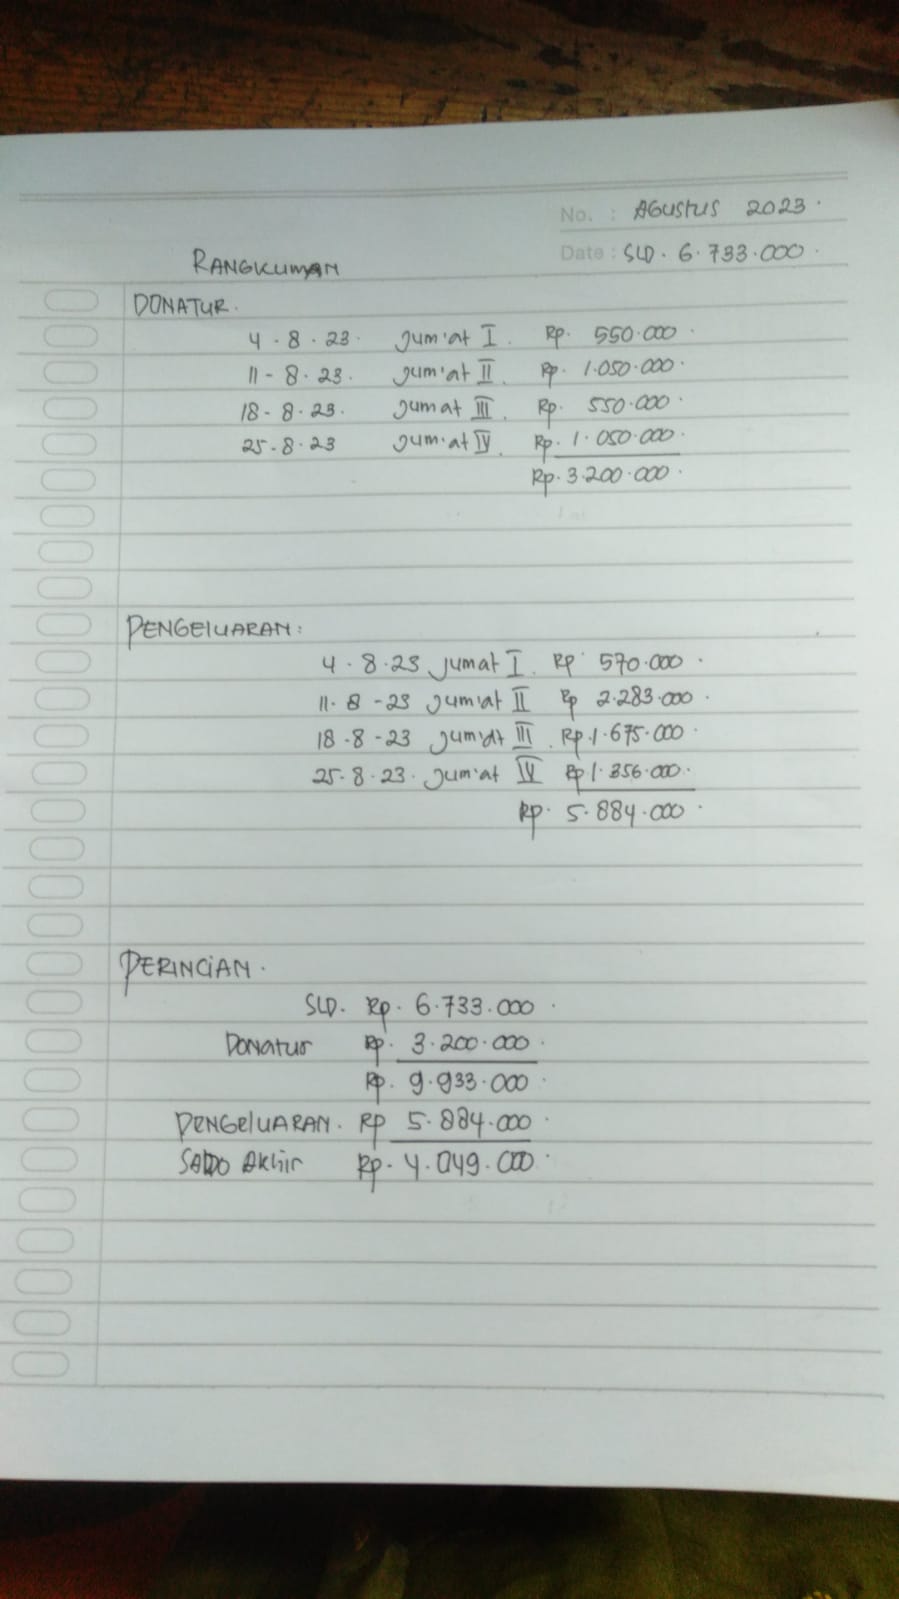 No. : AGUSTUS 2023.
Date : SLD. 6.733.000.
RANGKUMAN
DONATUR.
4.8.23. Jum'at I. Rp. 550.000.
11-8.23. Jum'at II. Rp. 1.050.000.
18-8.23. Jumat III. Rp. 550.000.
25-8.23 Jum'at IV. Rp. 1.050.000.
Rp. 3.200.000.
PENGELUARAN:
4.8.23 Jumat I. Rp 570.000.
11.8-23 Jum'at II Rp 2.283.000.
18.8-23 Jum'at III. Rp. 1.675.000.
25.8.23. Jum'at IV Rp 1.356.000.
Rp. 5.884.000.
PERINCIAN.
SLD. Rp. 6.733.000.
Donatur Rp. 3.200.000.
Rp. 9.933.000.
PENGELUARAN. Rp 5.884.000.
SALDO AKhir Rp. 4.049.000.